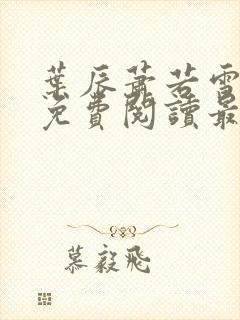 葉辰蕭若雪
免費閱讀最
慕毅飛